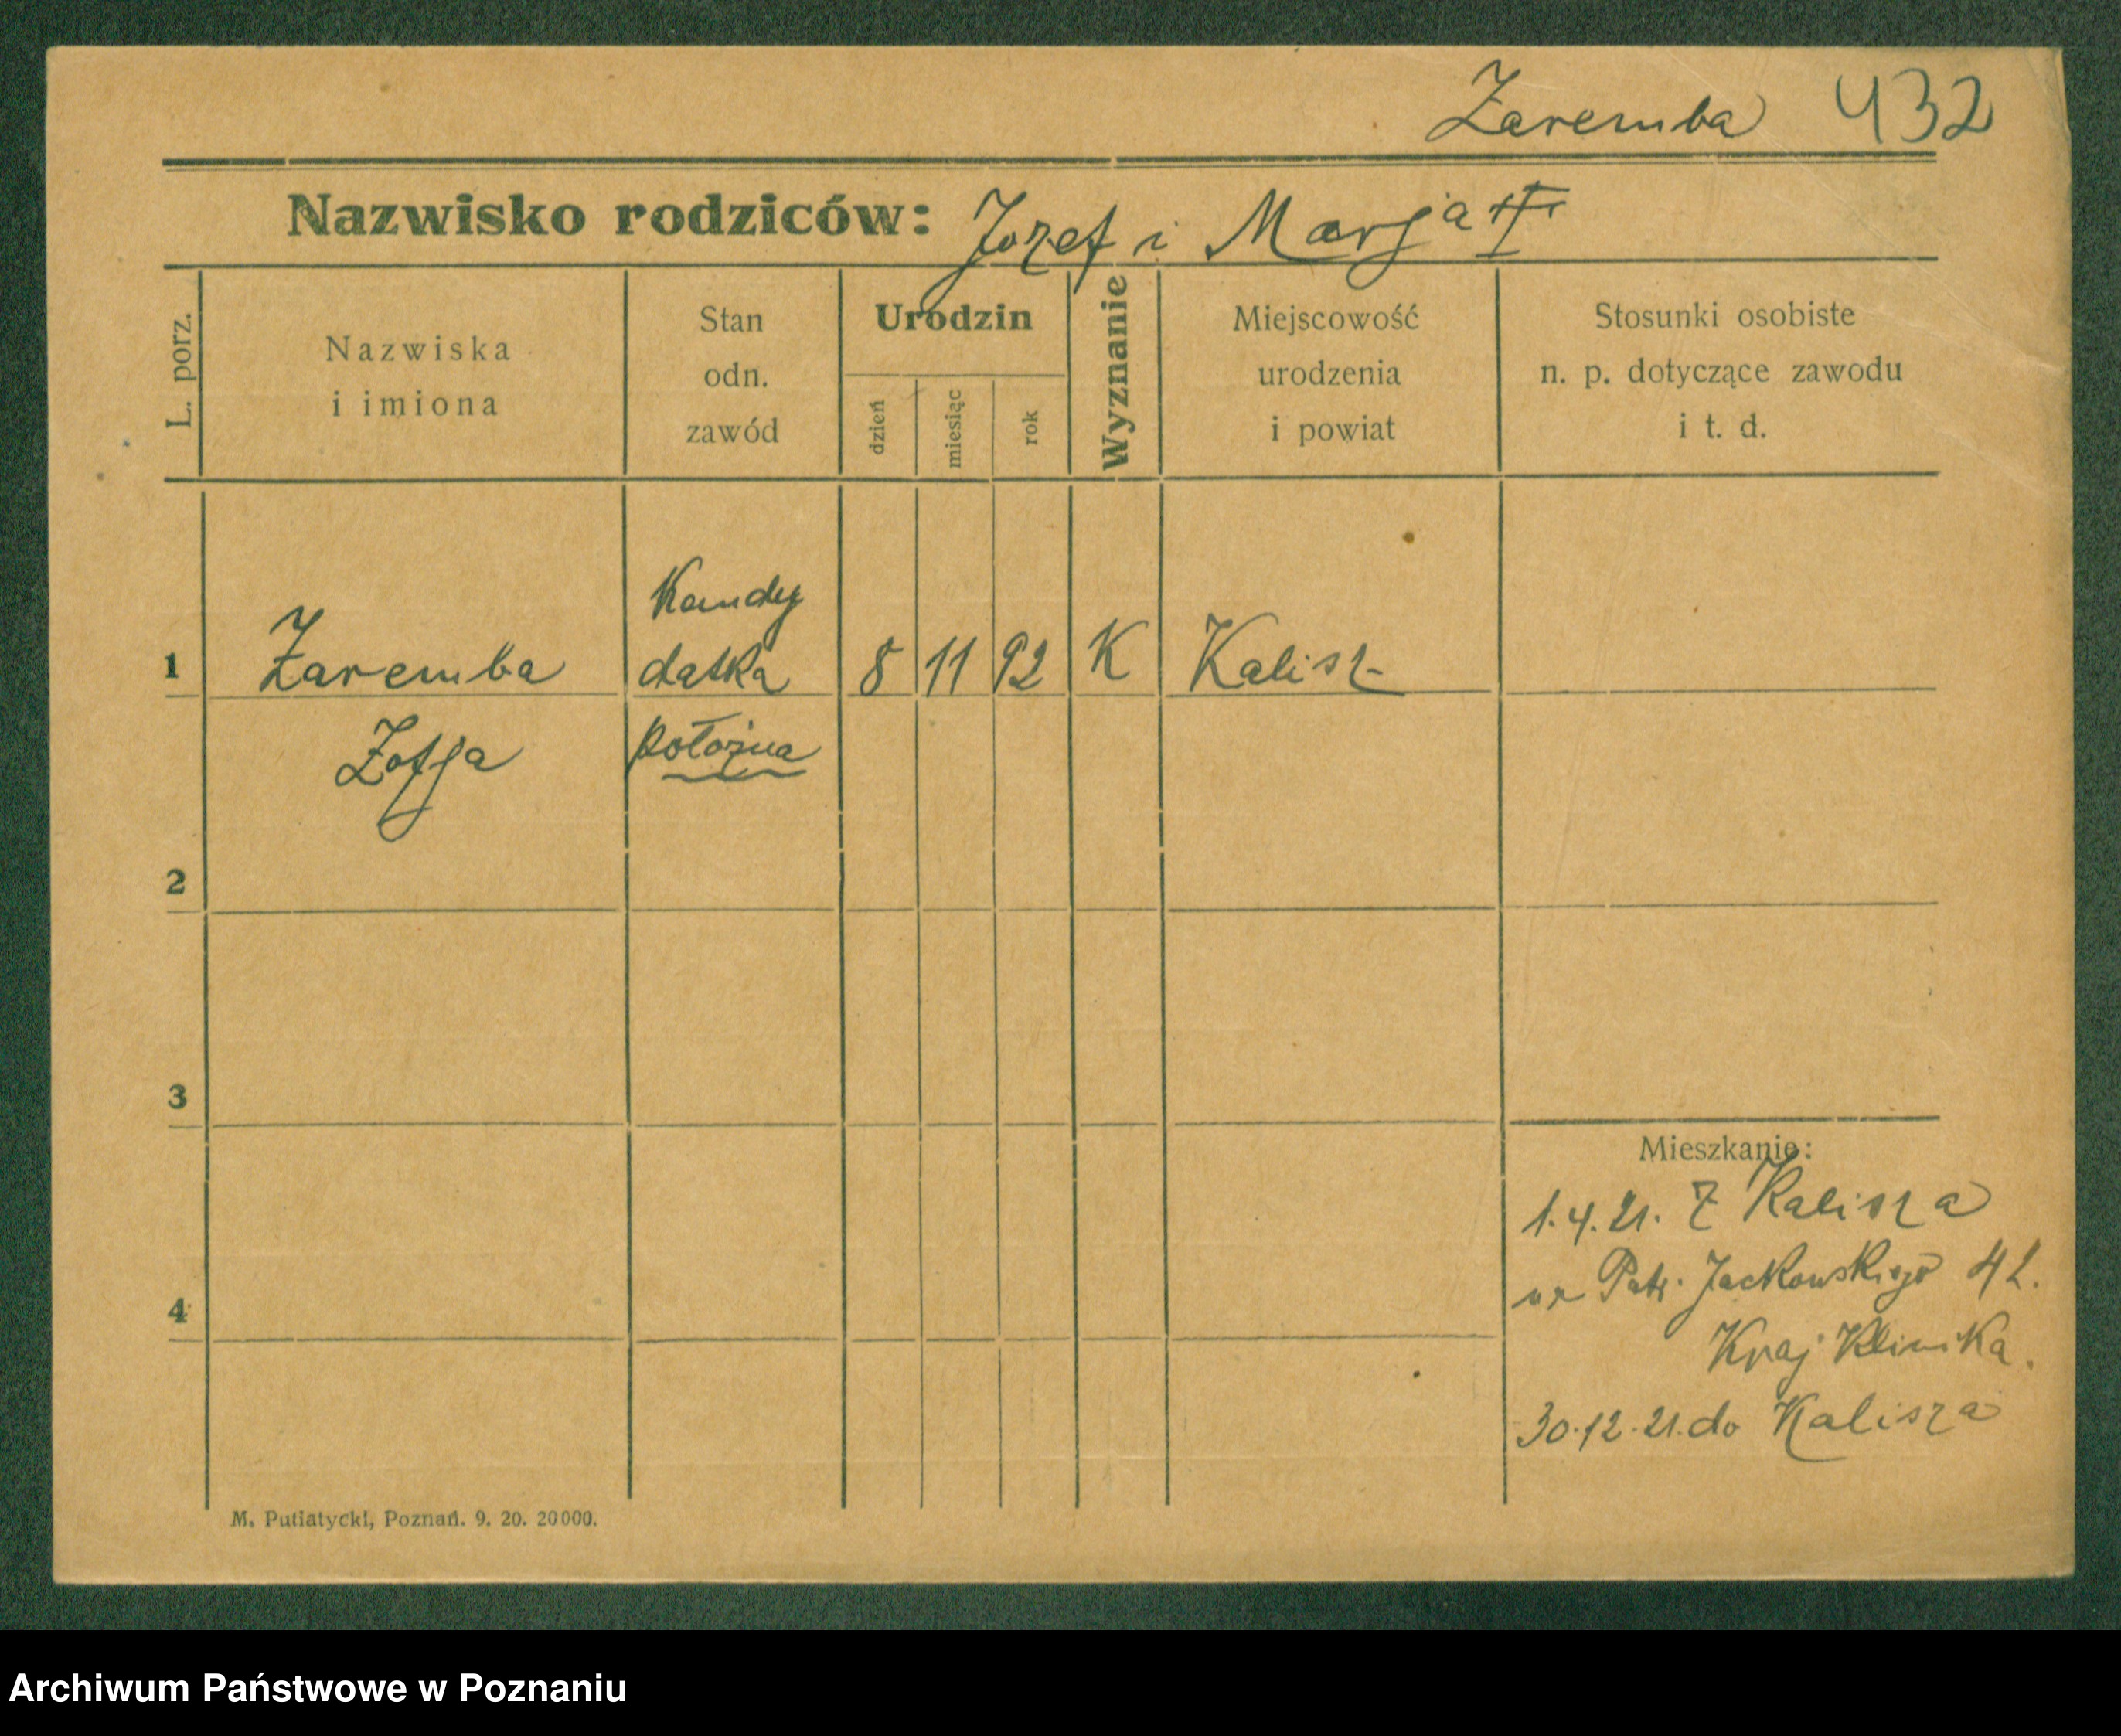 Zaremba 432
Nazwisko rodziców: Jozef i Marja
L. porz.
Nazwiska
i imiona
Stan
odn.
zawód
Urodzin
dzień
miesiąc
rok
Wyznanie
Miejscowość
urodzenia
i powiat
Stosunki osobiste
n. p. dotyczące zawodu
i t. d.
Kandy
1 Zaremba datka 8 11 92 K Kalisz
Zofja położna
2
3
Mieszkanie:
1.4.21. Z Kalisza
Patr. Jackowskiego
4
Kraj Klinika.
30.12.21. do Kalisza
M. Putiatycki, Poznań. 9. 20. 20000.
Archiwum Państwowe w Poznaniu